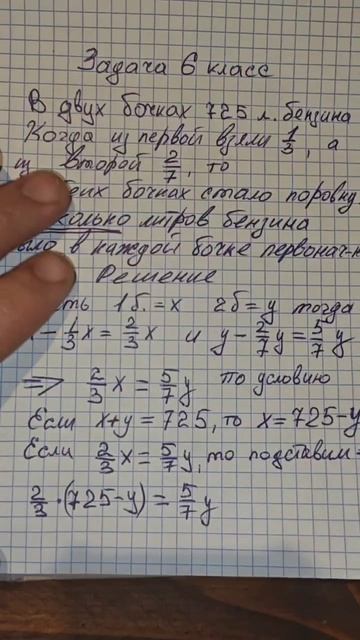 Задача 6 класс
В двух бочках 725 л. бензина
Когда из первой взяли 1/3, а
второй 2/7, то
бочках стало поровну
литров бензина
в каждой бочке первонач-н
Решение
1б. = x 2б = y тогда
- 1/3x = 2/3x и y - 2/7y = 5/7y
=> 2/3x = 5/7y по условию
Если x+y = 725, то x = 725-y
Если 2/3x = 5/7y, то подставим
2/3·(725-y) = 5/7y